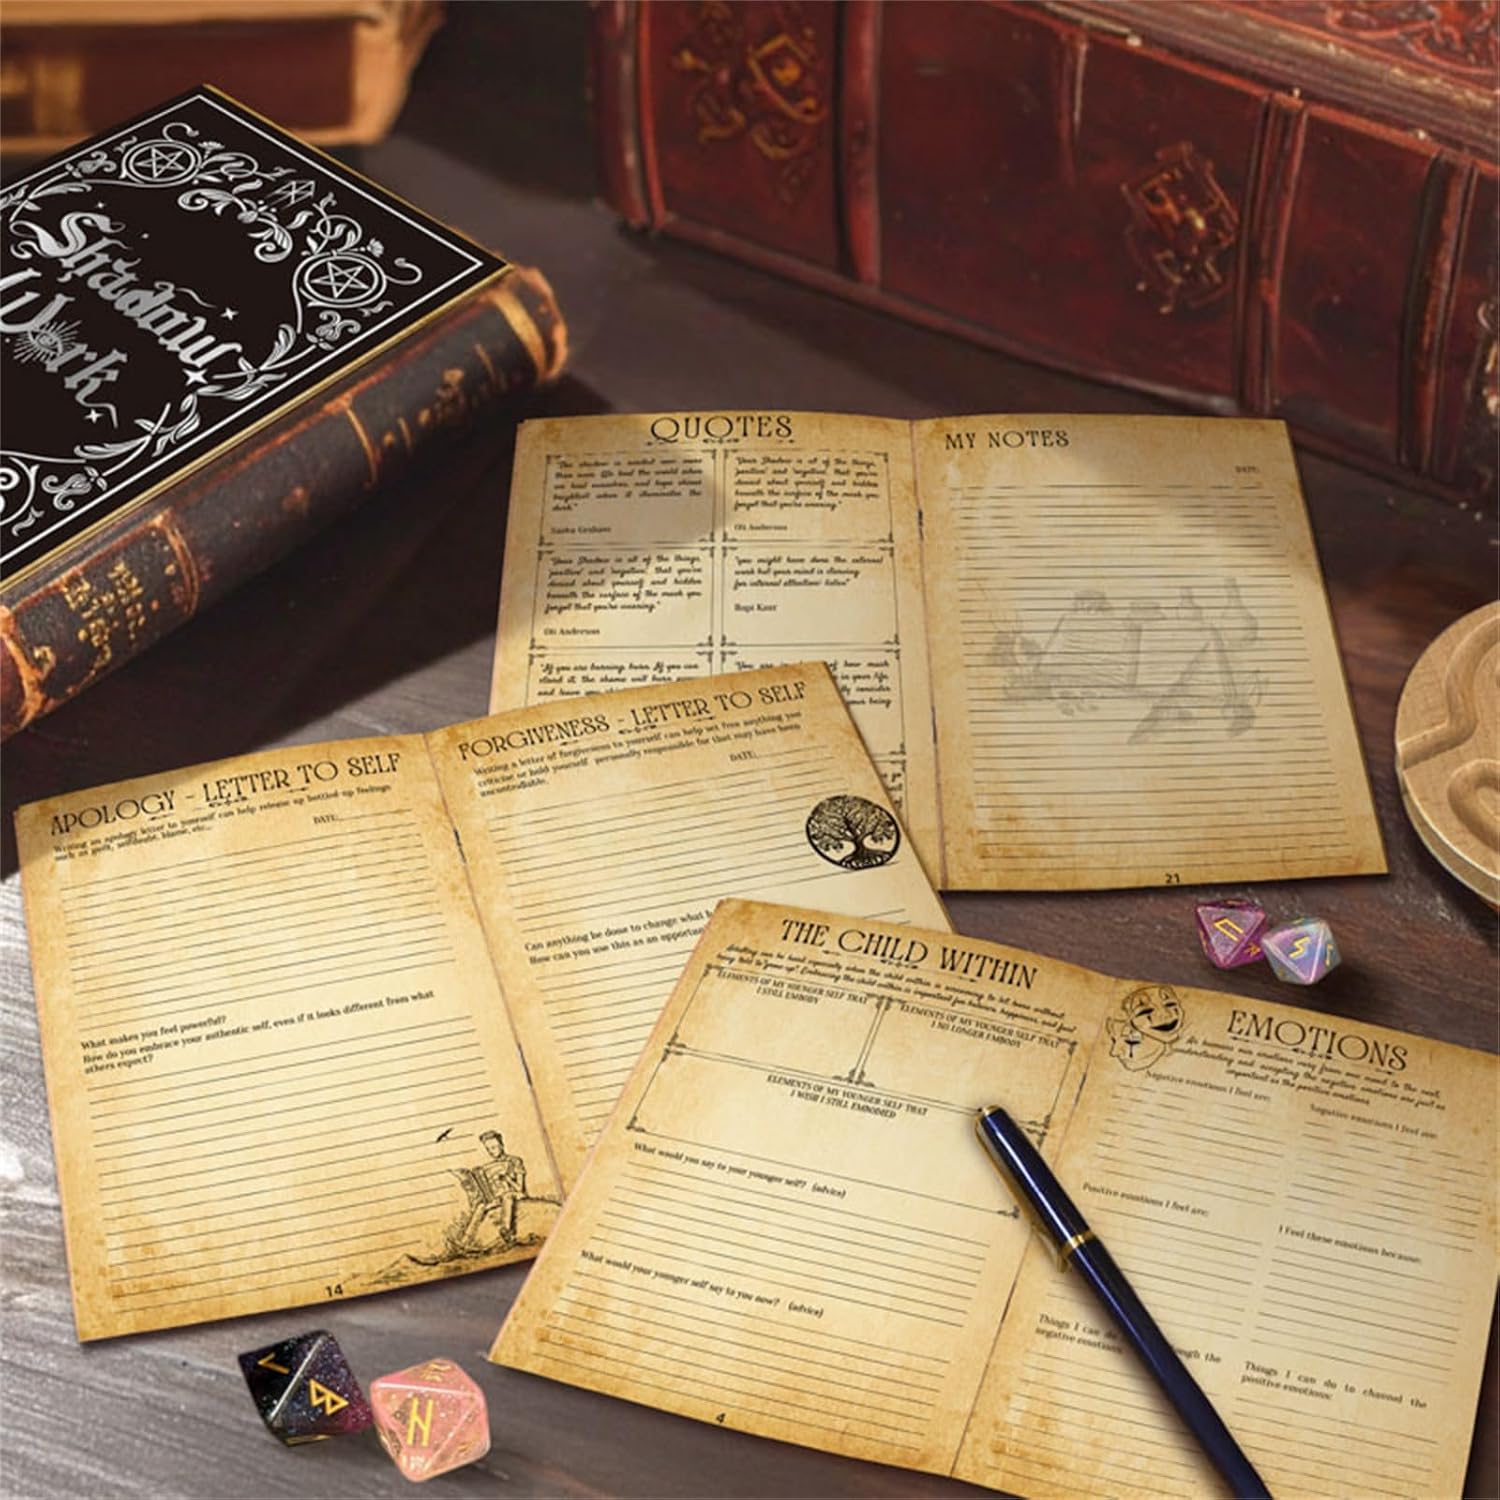 Shadow
Work
QUOTES
"The shadow is needed now more
than ever. We heal the world when
we heal ourselves, and hope shines
brightest when it illuminates the
dark."
Sasha Graham
"Your Shadow is all of the things,
'positive' and 'negative', that you've
denied about yourself and hidden
beneath the surface of the mask you
forget that you're wearing."
Oli Anderson
"Your Shadow is all of the things,
'positive' and 'negative', that you've
denied about yourself and hidden
beneath the surface of the mask you
forget that you're wearing."
Oli Anderson
"you might have done the external
work but your mind is starving
for internal attention/ listen"
Rupi Kaur
"If you are burning, burn. If you can
stand it, the shame will burn away
and leave you
"You are
of how much
in your life
consider
your being
MY NOTES
DATE:
21
APOLOGY - LETTER TO SELF
Writing an apology letter to yourself can help release up bottled up feelings
such as guilt, selfdoubt, blame, etc..
DATE:
What makes you feel powerful?
How do you embrace your authentic self, even if it looks different from what
others expect?
14
FORGIVENESS - LETTER TO SELF
Writing a letter of forgiveness to yourself can help set free anything you
criticise or hold yourself personally responsible for that may have been
uncontrollable.
DATE:
Can anything be done to change what h
How can you use this as an opportun
THE CHILD WITHIN
Adulting can be hard especially when the child within is screaming to let loose without
being told to "grow up". Embracing the child within is important for balance, happiness, and fun!
ELEMENTS OF MY YOUNGER SELF THAT
I STILL EMBODY
ELEMENTS OF MY YOUNGER SELF THAT
I NO LONGER EMBODY
ELEMENTS OF MY YOUNGER SELF THAT
I WISH I STILL EMBODIED
What would you say to your younger self? (advice)
What would your younger self say to you now? (advice)
4
EMOTIONS
As humans our emotions vary from one mood to the next,
understanding and accepting the negative emotions are just as
important as the positive emotions.
Negative emotions I feel are:
Negative emotions I feel are:
Positive emotions I feel are:
I Feel these emotions because:
Things I can do
through the
negative emotions:
Things I can do to channel the
positive emotions: